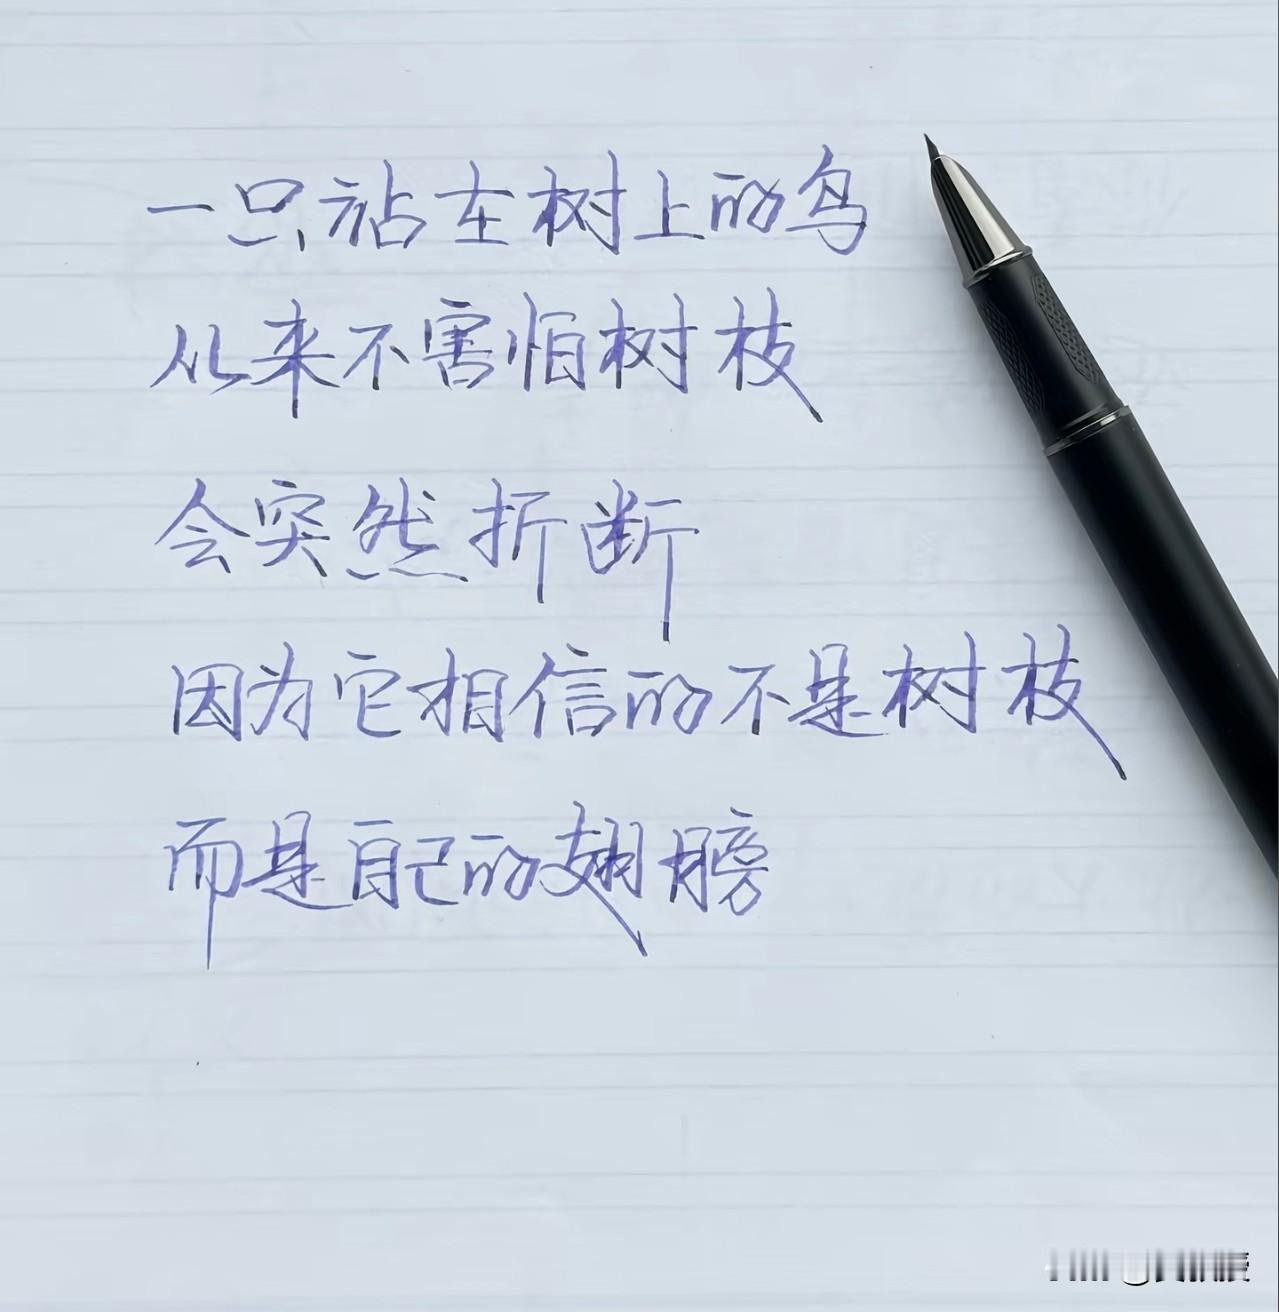 一只站在树上的鸟
从来不害怕树枝
会突然折断
因为它相信的不是树枝
而是自己的翅膀